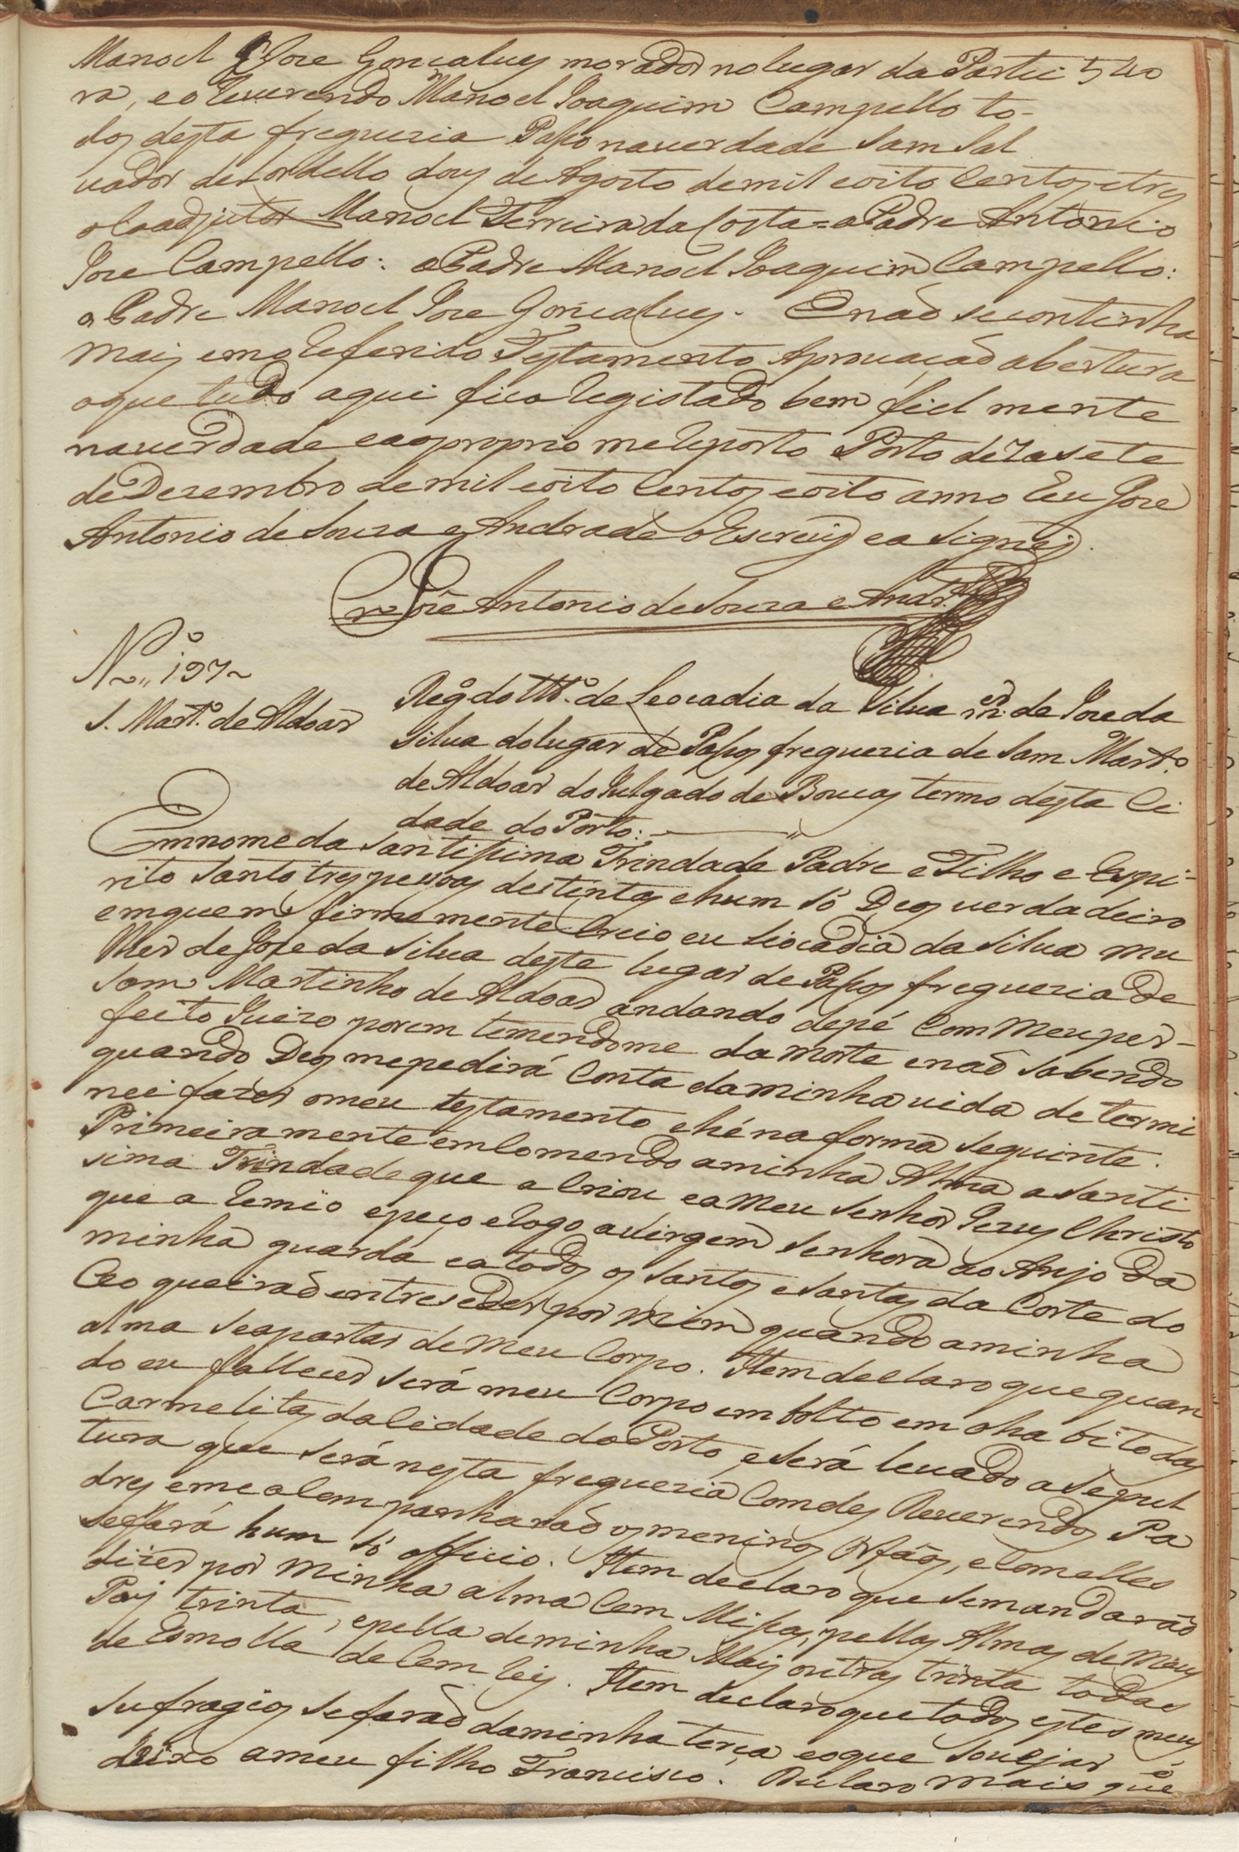 Manoel Joze Gonçalvez morador no lugar da Partei 540
ra, e o Reverendo Manoel Joaquim Campello to-
dos desta freguezia Paso na verdade Sam Sal
vador de Lordello dous de Agosto de mil e oito Centos e tres
o Coadjutor Manoel Ferreira da Costa = o Padre Antonio
Joze Campello: o Padre Manoel Joaquim Campello:
o Padre Manoel Joze Gonçalvez. E naõ se continha
mais em o Referido Testamento Aprovaçaõ abertura
o que tudo aqui fica Registado bem fiel mente
na verdade e ao proprio me Reporto Porto deZasete
de Dezembro de mil e oito Centos e oito anno Eu Joze
Antonio de Souza e Andrade o Escrevy e a Signey
Joze Antonio de Souza e Andr.e
N.º 197
S. Mart.º de Aldoar
Reg.º do Tt.º de Leocadia da Silva m.er de Joze da
Silva do lugar de Pasos freguezia de Sam Mart.º
de Aldoar do Julgado de Bouças termo desta Ci
dade do Porto:
Em nome da Santisima Trindade Padre e Filho e Espi-
rito Santo tres pessoas destintas e hum só Deos verdadeiro
em quem firmemente Creio eu Liocadia da Silva mu
lher de Joze da Silva deste lugar de Pasos freguezia de
Sam Martinho de Aldoar andando de pé Com Meu per-
feito Juizo porem temendome da morte e naõ Sabendo
quando Deos me pedirá Conta da minha vida determi
nei fazer o meu testamento e hé na forma Seguinte.
Primeiramente emComendo a minha Alma a Santi
sima Trindade que a Criou e a Meu Senhor Jezus Christo
que a Remio e peço e logo a virgem Senhora ao Anjo da
minha guarda e a todos os Santos e Santas da Corte do
Ceo queiraõ entreseder por Mim quando a minha
alma Se apartar de Meu Corpo. Item declaro que quan
do eu fallecer Será meu Corpo embolto em o habito das
Carmelitas da Cidade do Porto e Será levado a Sepul
tura que Será nesta freguezia Com des Reverendos Pa
dres e me aCompanharaõ os meninos Orfaõs, e Com elles
Se fará hum só officio. Item declaro que Se mandaraõ
dizer por Minha alma Cem Misas, pellas Almas de Meu
Pay trinta, e pella de minha May outras trinta todas
de Esmolla de Cem reis. Item declaro que todos estes meus
Sufragios Se faraõ da minha terça e o que Sobejar
deixo a meu filho Francisco. Declaro mais que